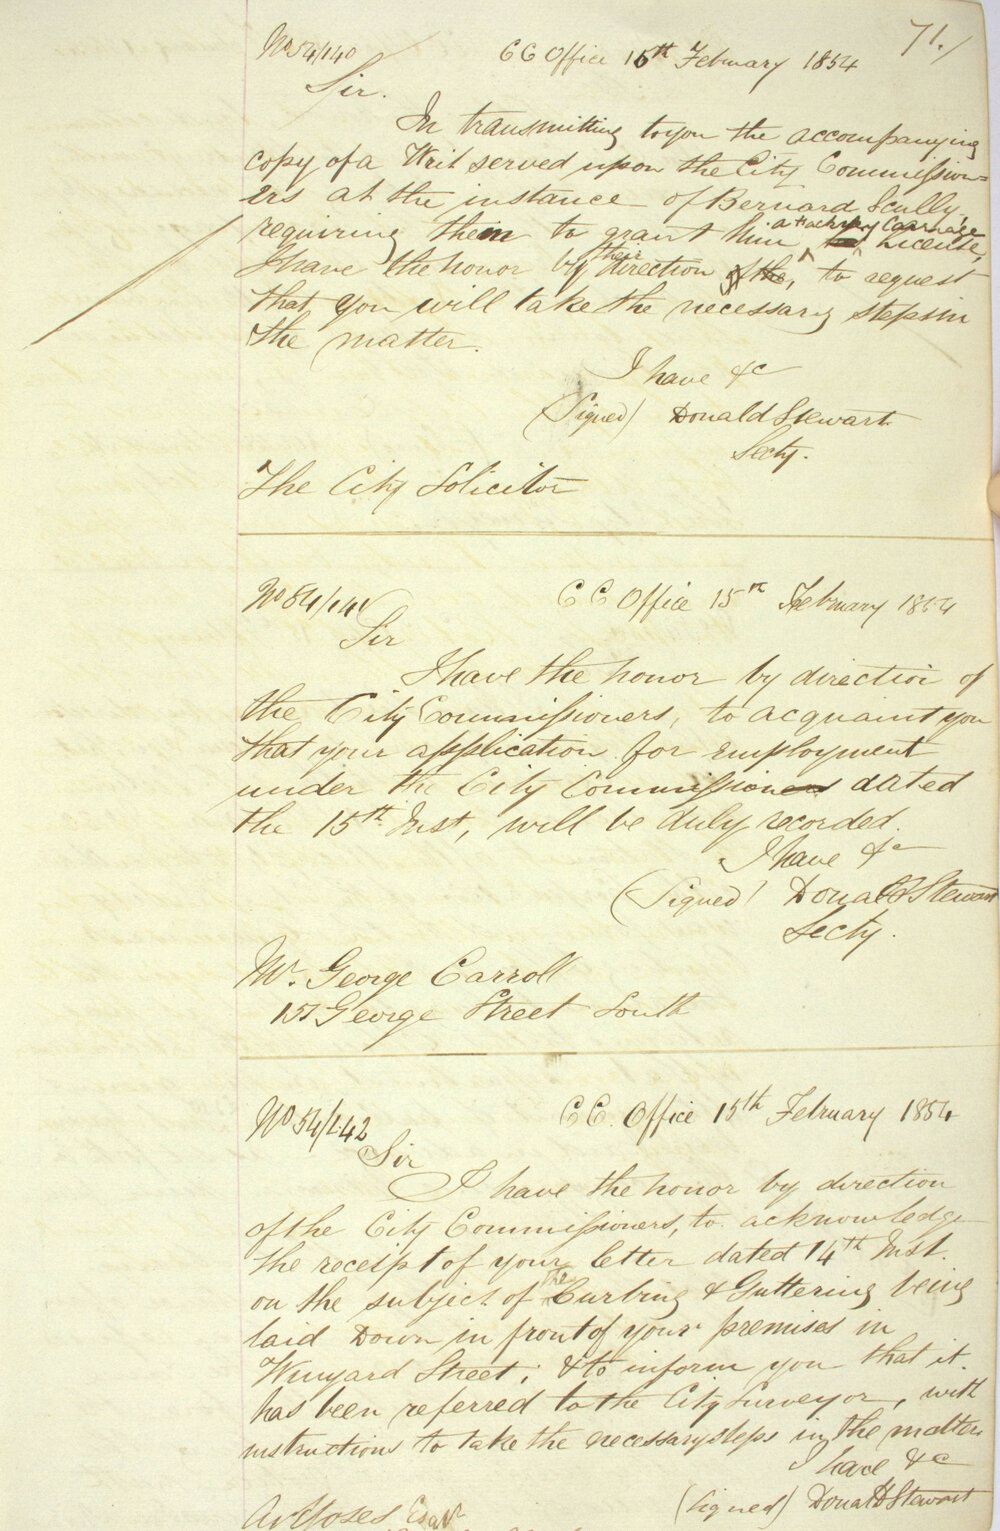 71./
No 54/140 CC Office 15th February 1854
Sir.
In transmitting to you the accompanying
copy of a Writ served upon the City Commission=
ers at the instance of Bernard Scully,
requiring them to grant him a Hackney Carriage License,
I have the honor by their direction of the, to request
that you will take the necessary steps in
the matter.
I have &c
(Signed) Donald Stewart
Secty.
The City Solicitor
No 54/141 CC Office 15th February 1854
Sir
I have the honor by direction of
the City Commissioners, to acquaint you
that your application for employment
under the City Commissioners dated
the 15th Inst, will be duly recorded.
I have &c
(Signed) Donald Stewart
Secty.
Mr. George Carroll
151 George Street South
No 54/142 CC. Office 15th February 1854
Sir
I have the honor by direction
of the City Commissioners, to acknowledge
the receipt of your letter dated 14th Inst.
on the subject of the Curbing & Guttering being
laid Down in front of your premises in
Wynyard Street; & to inform you that it
has been referred to the City Surveyor, with
instructions to take the necessary steps in the matter
I have &c
(Signed) Donald Stewart
Esqr